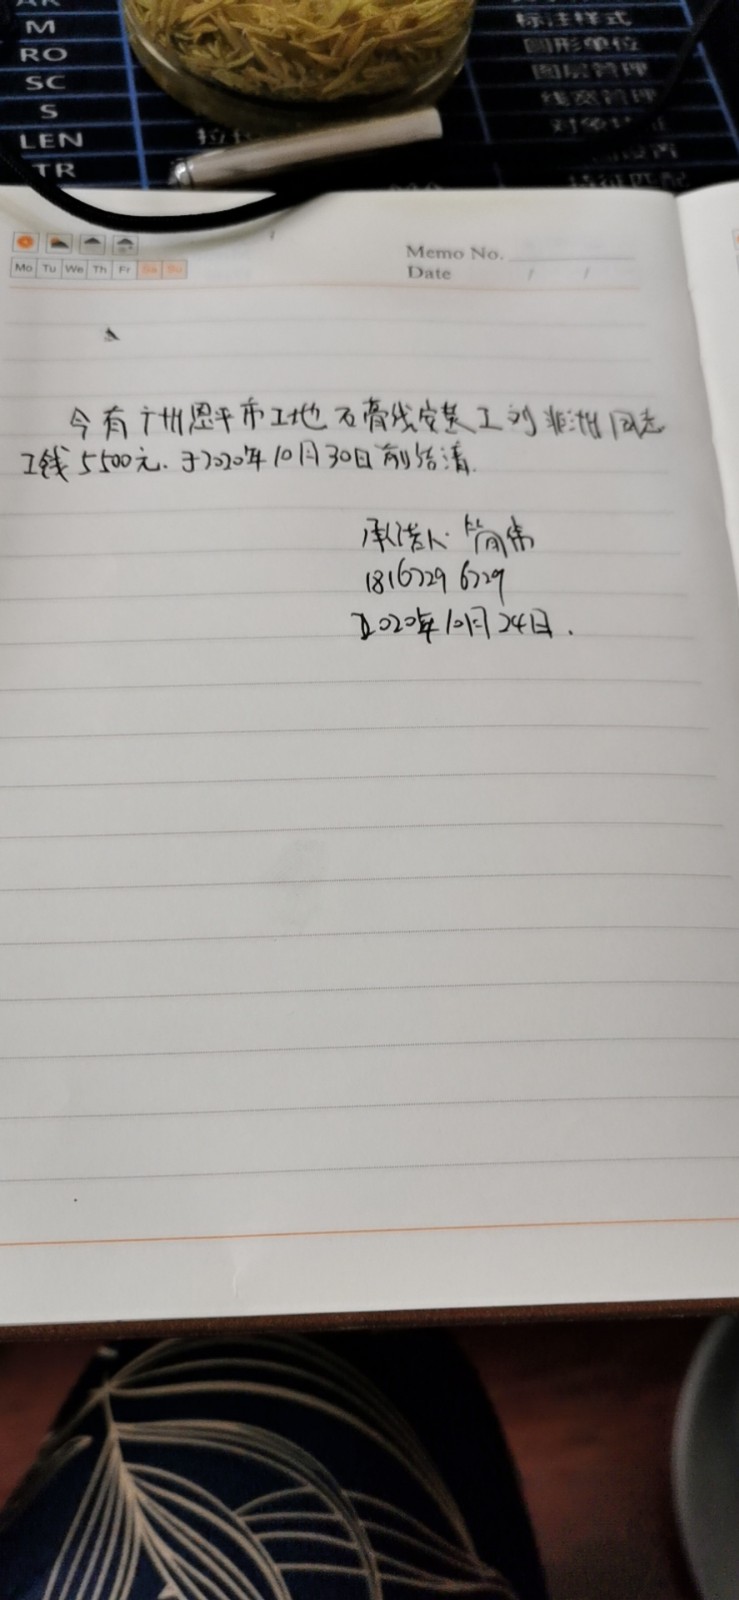 M
RO
SC
S
LEN
TR
标注样式
圆形单位
图层管理
线宽管理
特征匹配
Memo No.
Date / /
Mo Tu We Th Fr Sa Su
今有广州恩平市工地石膏线安装工刘非洲同志
工钱5500元.于2020年10月30日前结清.
承诺人:简伟
18167296729
2020年10月24日.